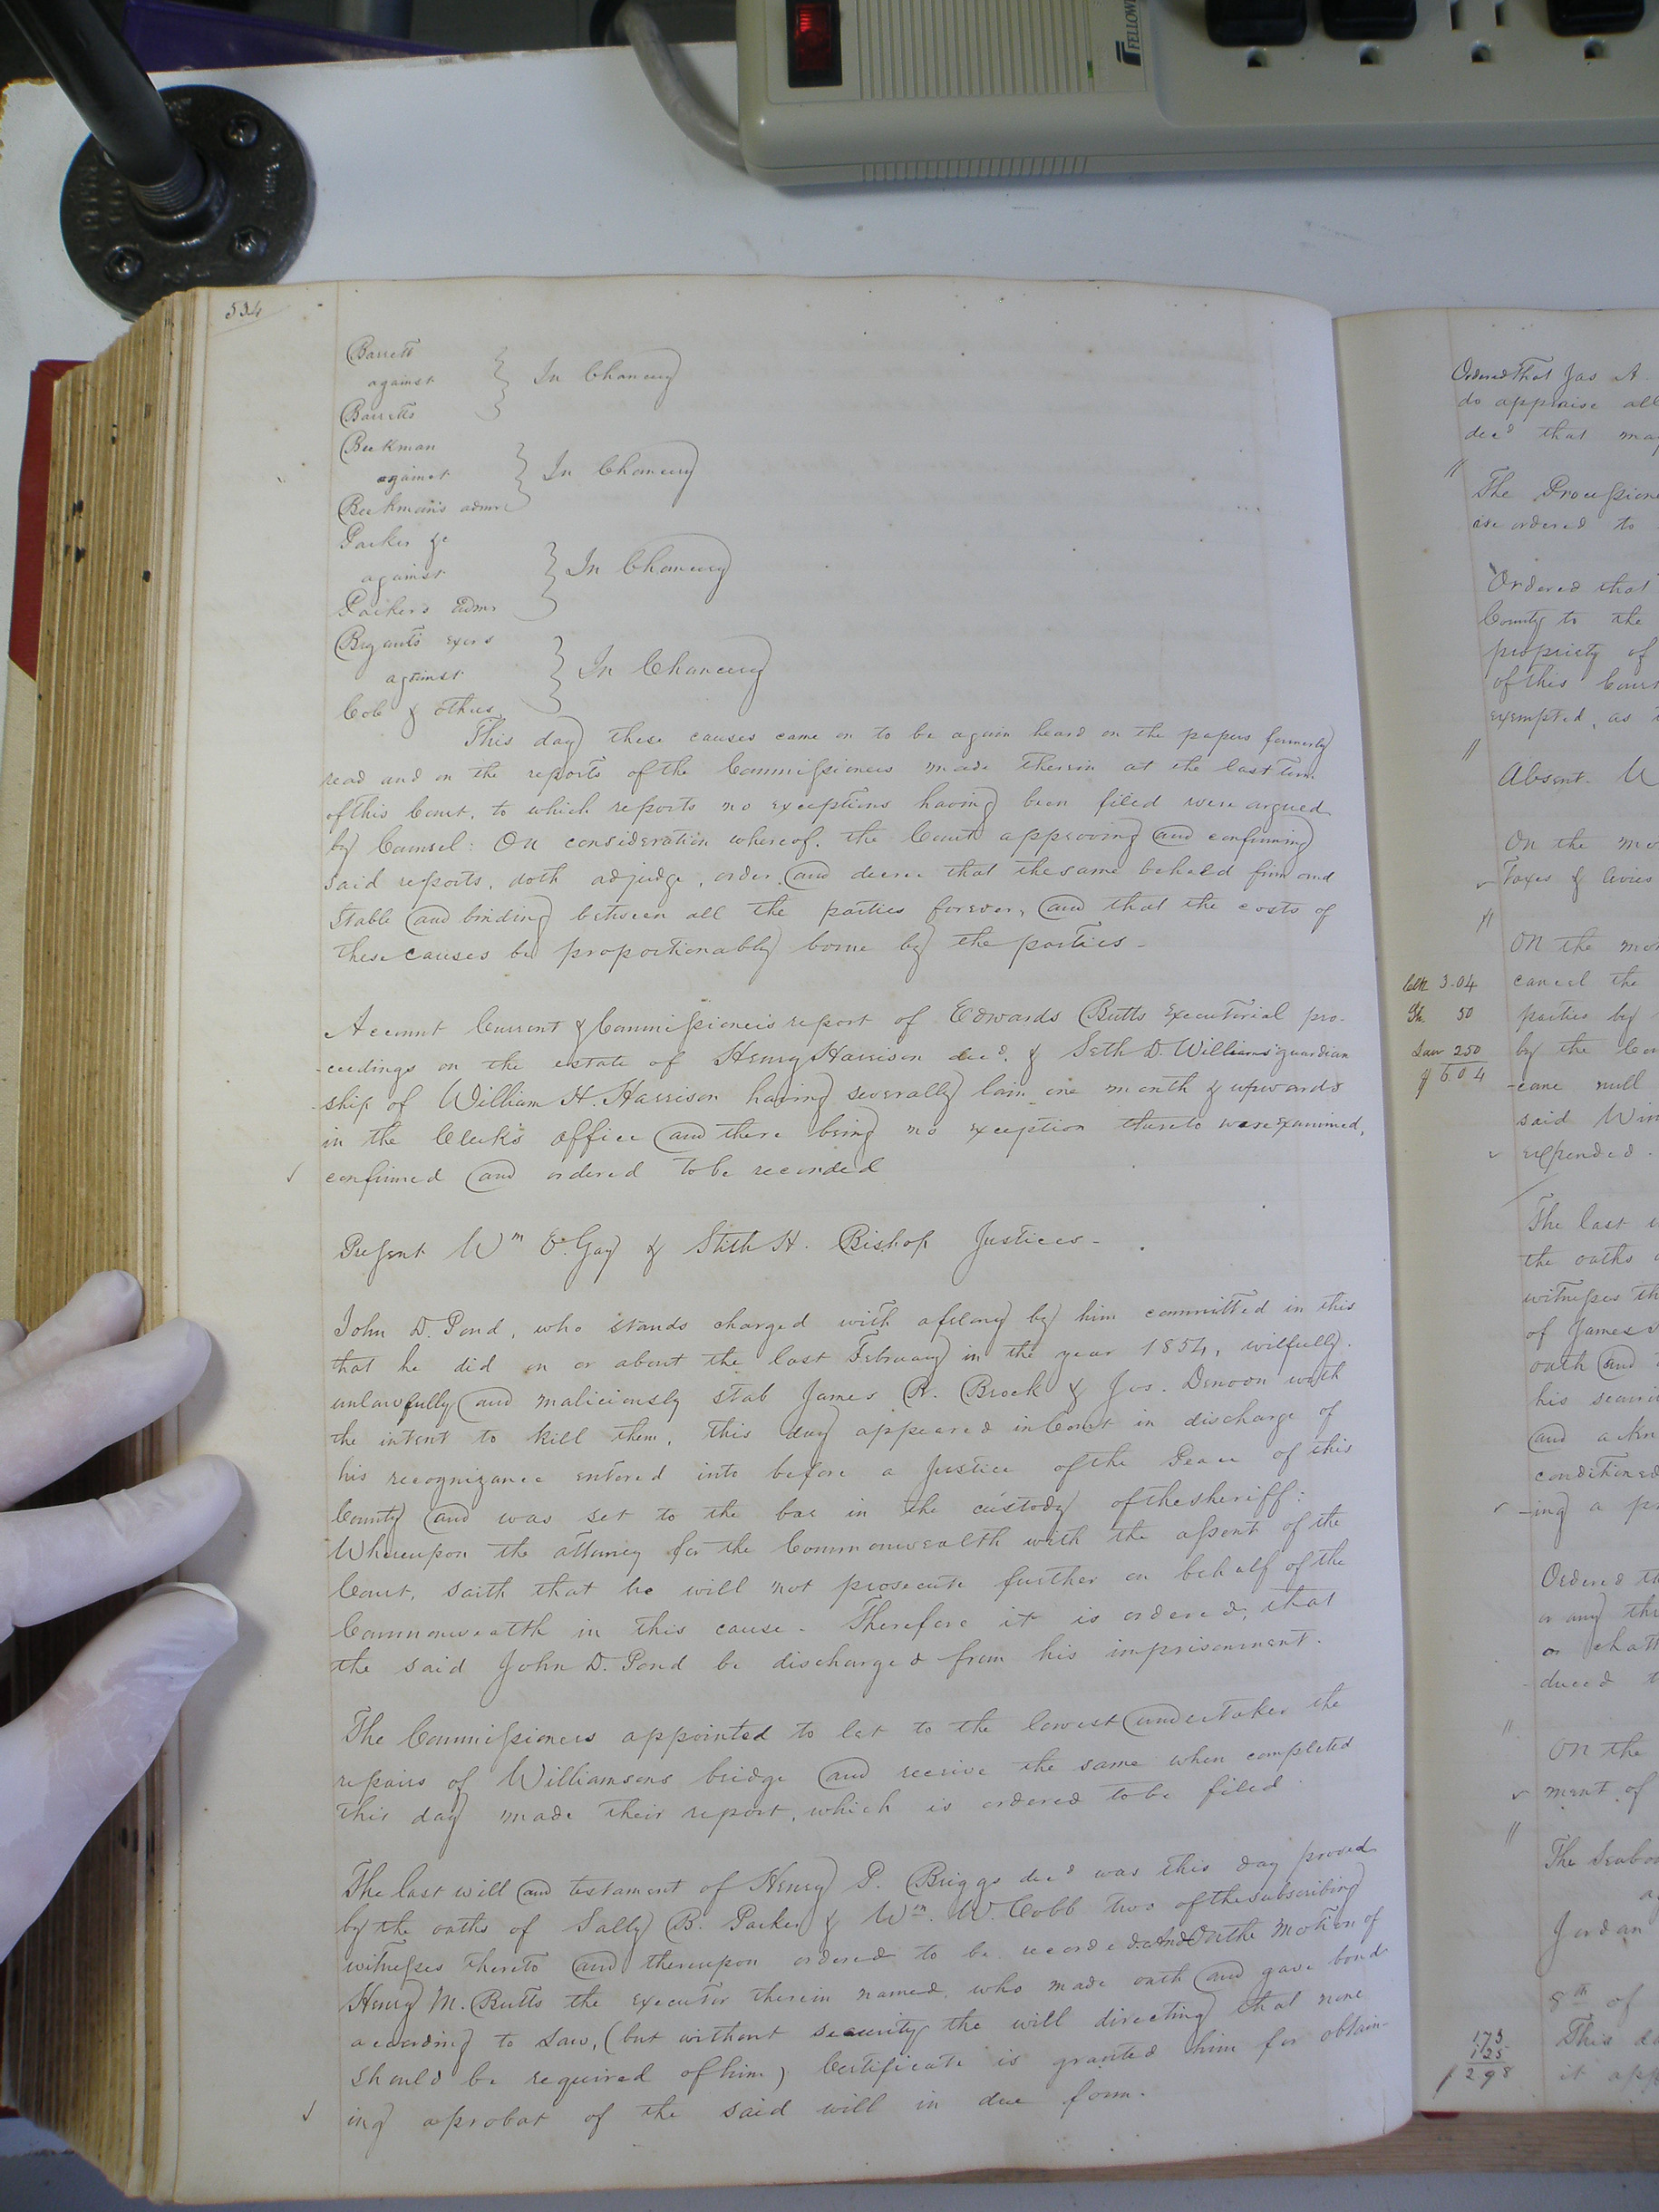 FELLOW
534
Barrett
against } In Chancery
Barretts
Beekman
against } In Chancery
Beekman's admr
Parker &c
against } In Chancery
Parker's admr
Bryants exors
against } In Chancery
Cob & others
This day these causes came on to be again heard on the papers formerly
read and on the reports of the Commissioners made therein at the last term
of this Court, to which reports no exceptions having been filed were argued
by Counsel: On consideration whereof, the Court approving and confirming
said reports, doth adjudge, order and decree that the same be held firm and
stable and binding between all the parties forever, and that the costs of
these causes be proportionably borne by the parties -
Account Current & Commissioners report of Edwards Butts Executorial pro-
-ceedings on the estate of Henry Harrison decd. & Seth D. Williams' guardian
ship of William H. Harrison having severally lain one month & upwards
in the Clerk's office and there being no exception thereto were examined,
confirmed and ordered to be recorded
Present Wm E. Gay & Stith H. Bishop Justices -
John D. Pond, who stands charged with a felony by him committed in this
that he did on or about the last February in the year 1854, wilfully,
unlawfully and maliciously stab James R. Brock & Jos. Denoon with
the intent to kill them, this day appeared in Court in discharge of
his recognizance entered into before a Justice of the Peace of this
County and was set to the bar in the custody of the sheriff:
Whereupon the attorney for the Commonwealth with the assent of the
Court, saith that he will not prosecute further on behalf of the
Commonwealth in this cause. Therefore it is ordered, that
the said John D. Pond be discharged from his imprisonment.
The Commissioners appointed to let to the lowest undertaker the
repairs of Williamsons bridge and receive the same when completed
this day made their report, which is ordered to be filed
The last will and testament of Henry P. Briggs decd was this day proved
by the oaths of Sally B. Parker & Wm. W. Cobb two of the subscribing
witnesses thereto and thereupon ordered to be recorded. And On the motion of
Henry M. Butts the executor therein named, who made oath and gave bond
according to Law, (but without security the will directing that none
should be required of him) Certificate is granted him for obtain-
ing a probat of the said will in due form.
Ordered That Jas A.
do appraise all
decd that may
The Processione
are ordered to
Ordered that
County to the
propriety of
of this Court
exempted, as
Absent. W
On the mo
Taxes & levies
On the mo
Clk 3.04 cancel the
Sh. 50 parties by
Law 2.50 by the Cou
$ 6.04 -came null
said Win
expended.
The last w
the oaths
witnesses th
of James
oath and
his securi
and ackn
conditioned
-ing a pr
Ordered th
or any thr
or chatt
-duced t
On the
ment of
The Seabo
Jordan
8th of
173 This da
125
298 it app